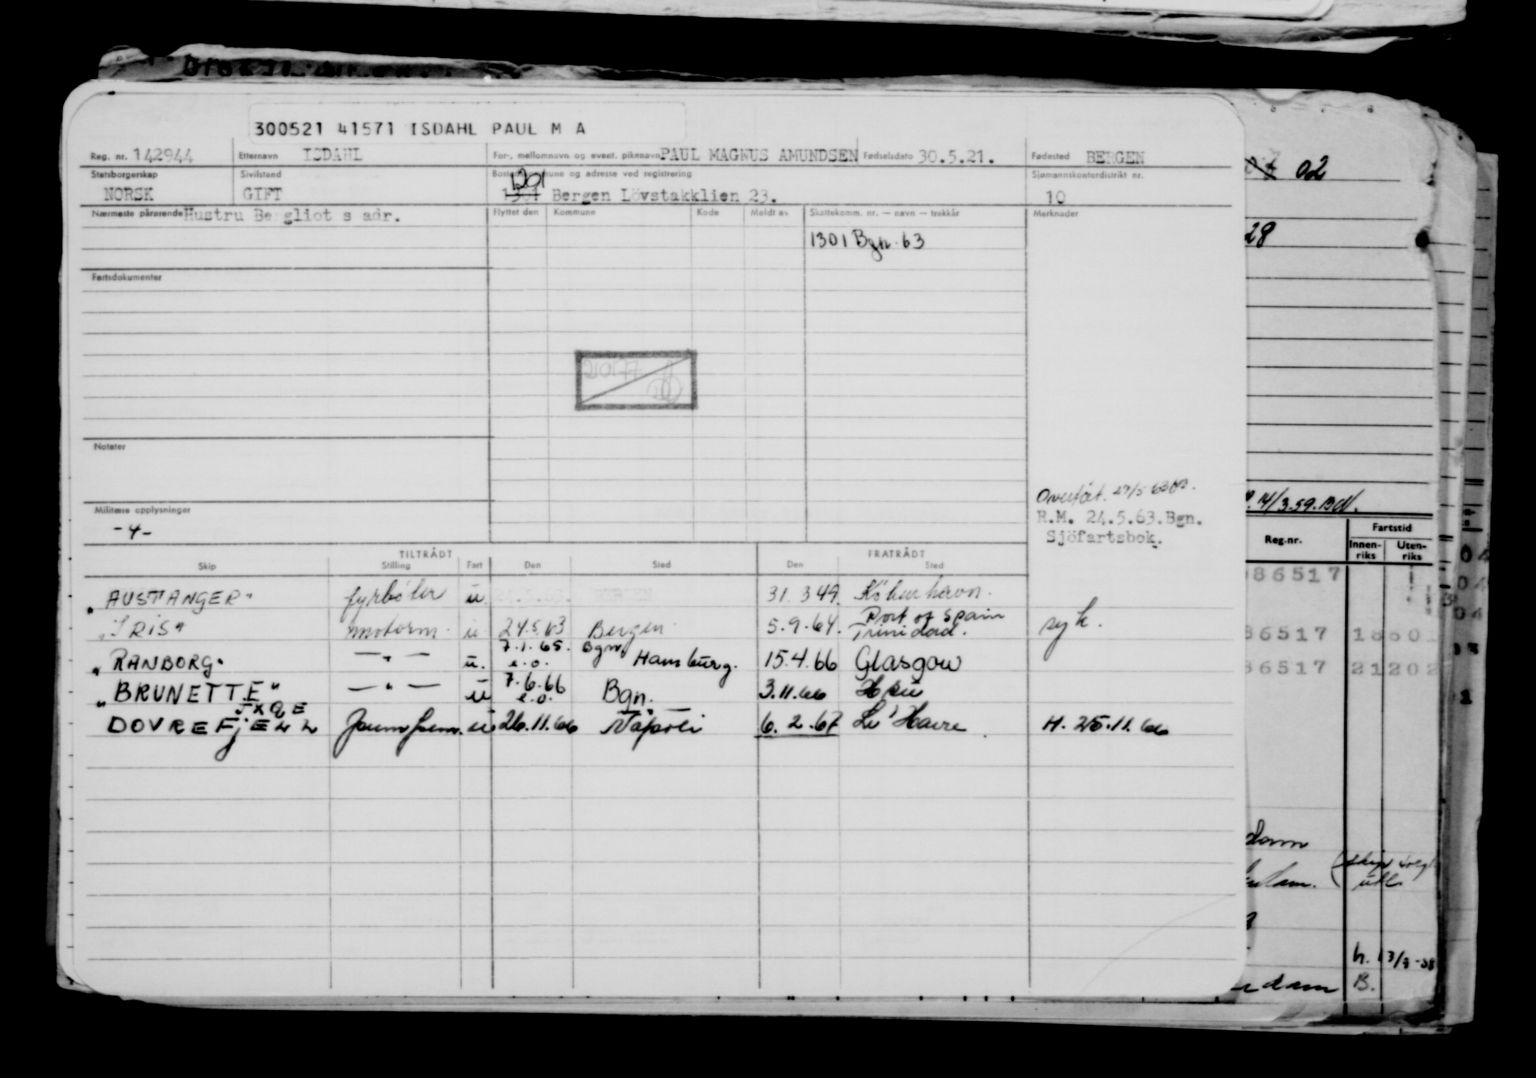 300521 41571 ISDAHL PAUL M A
Reg. nr. 142944 Etternavn ISDAHL For-, mellomnavn og event. pikenavn PAUL MAGNUS AMUNDSEN Fødselsdato 30.5.21. Fødested BERGEN
Statsborgerskap Sivilstand og adresse ved registrering Sjømannskontordistrikt nr.
1301
NORSK GIFT 1301 Bergen Lövstakklien 23. 10
Nærmeste pårørende Hustru Bergliot s adr. Flyttet den Kommune Kode Meldt av Skattekomm. nr. — navn — trekkår Merknader
1301 Bgn. 63
Fartsdokumenter
Notater
Overført. 27/5 63
Militære opplysninger
R.M. 24.5.63.Bgn.
-4-
Sjöfartsbok.
TILTRÅDT FRATRÅDT
Skip Stilling Fart Den Sted Den Sted
"AUSTANGER" fyrbøter u. 31.3.49. København.
"IRIS" motorm. u 24.5.63 Bergen 5.9.64. Port of Spain Trinidad. syk.
"RANBORG" — " — u. 7.1.65. e.o. Bgn Hamburg. 15.4.66 Glasgow
"BRUNETTE" — " — u 7.6.66 e.o. Bgn. 3.11.66
JXQE
DOVREFJELL u 26.11.66 Napoli 6.2.67 Le Havre H. 25.11.66
02
28
14/3.59.
Fartstid
Reg.nr. Innen-riks Uten-riks
086517
86517
86517 21202
h. 13/3-58
B.